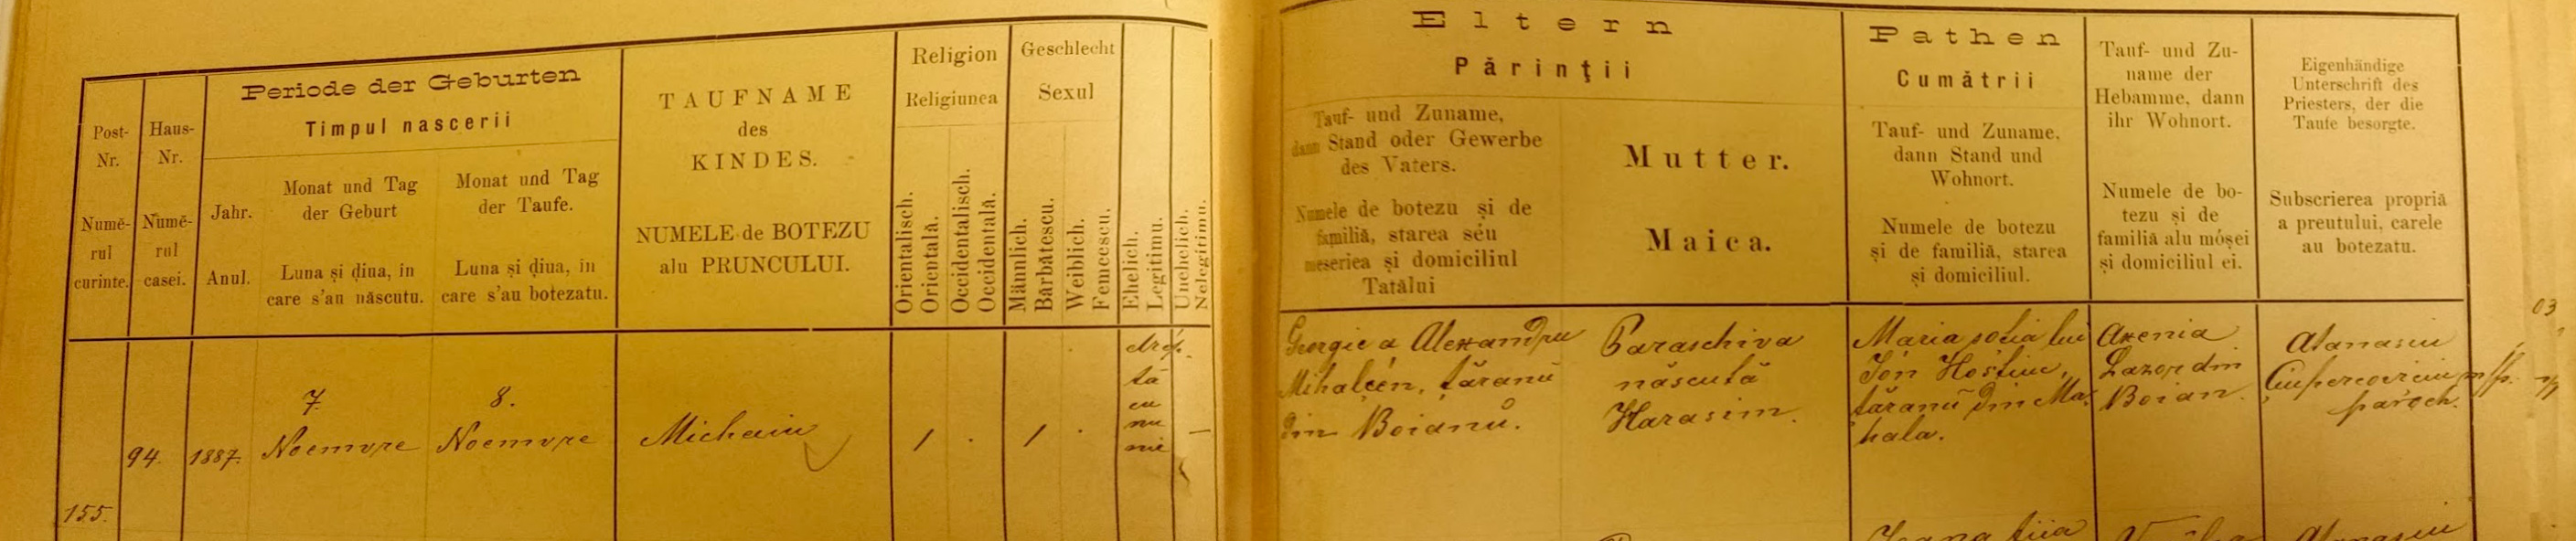 Post-
Nr.
Numě-
rul
curinte.
Haus-
Nr.
Numě-
rul
casei.
Periode der Geburten
Timpul nascerii
Jahr.
Anul.
Monat und Tag
der Geburt
Luna și ḍiua, in
care s'au născutu.
Monat und Tag
der Taufe.
Luna și ḍiua, in
care s'au botezatu.
TAUFNAME
des
KINDES.
NUMELE de BOTEZU
alu PRUNCULUI.
Religion
Religiunea
Orientalisch.
Orientală.
Occidentalisch.
Occidentală.
Geschlecht
Sexul
Männlich.
Bărbătescu.
Weiblich.
Femeescu.
Ehelich.
Legitimu.
Unehelich.
Nelegitimu.
Eltern
Părinţii
Tauf- und Zuname,
dann Stand oder Gewerbe
des Vaters.
Numele de botezu și de
familiă, starea séu
meseriea și domiciliul
Tatălui
Mutter.
Maica.
Pathen
Cumătrii
Tauf- und Zuname,
dann Stand und
Wohnort.
Numele de botezu
și de familiă, starea
și domiciliul.
Tauf- und Zu-
name der
Hebamme, dann
ihr Wohnort.
Numele de bo-
tezu și de
familiă alu móșei
și domiciliul ei.
Eigenhändige
Unterschrift des
Priesters, der die
Taufe besorgte.
Subscrierea propriă
a preutului, carele
au botezatu.
94.
1887.
7.
Noemvre
8.
Noemvre
Michaiu
/ .
/ .
drép-
tă
cu
nu
nie
—
Georgie a Alexandru
Mihalcén, țăranŭ
din Boianŭ.
Paraschiva
născută
Harasim.
Maria soția lui
Ión Hostiuc,
țăranŭ din Ma-
hala.
Axenia
Lazor din
Boian.
Atanasiu
paroch.
03
155.
Atanasiu